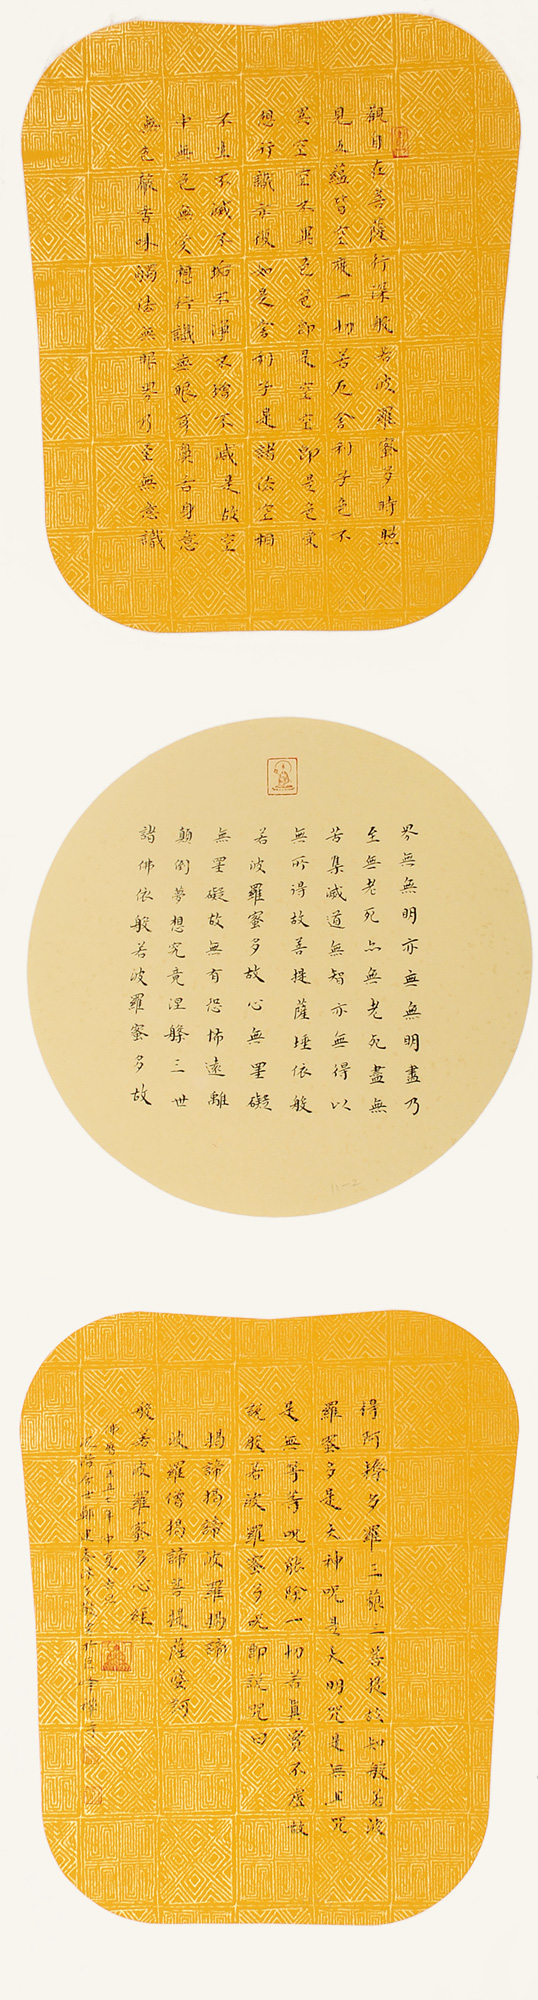 觀自在菩薩行深般若波羅蜜多時照
見五蘊皆空度一切苦厄舍利子色不
異空空不異色色即是空空即是色受
想行識亦復如是舍利子是諸法空相
不生不滅不垢不淨不增不減是故空
中無色無受想行識無眼耳鼻舌身意
無色聲香味觸法無眼界乃至無意識
界無無明亦無無明盡乃
至無老死亦無老死盡無
苦集滅道無智亦無得以
無所得故菩提薩埵依般
若波羅蜜多故心無罣礙
無罣礙故無有恐怖遠離
顛倒夢想究竟涅槃三世
諸佛依般若波羅蜜多故
得阿耨多羅三藐三菩提故知般若波
羅蜜多是大神呪是大明咒是無上咒
是無等等呪能除一切苦真實不虛故
說般若波羅蜜多呪即說咒曰
揭諦揭諦波羅揭諦
波羅僧揭諦菩提薩婆訶
般若波羅蜜多心經
佛曆二五五七年中夏吉日